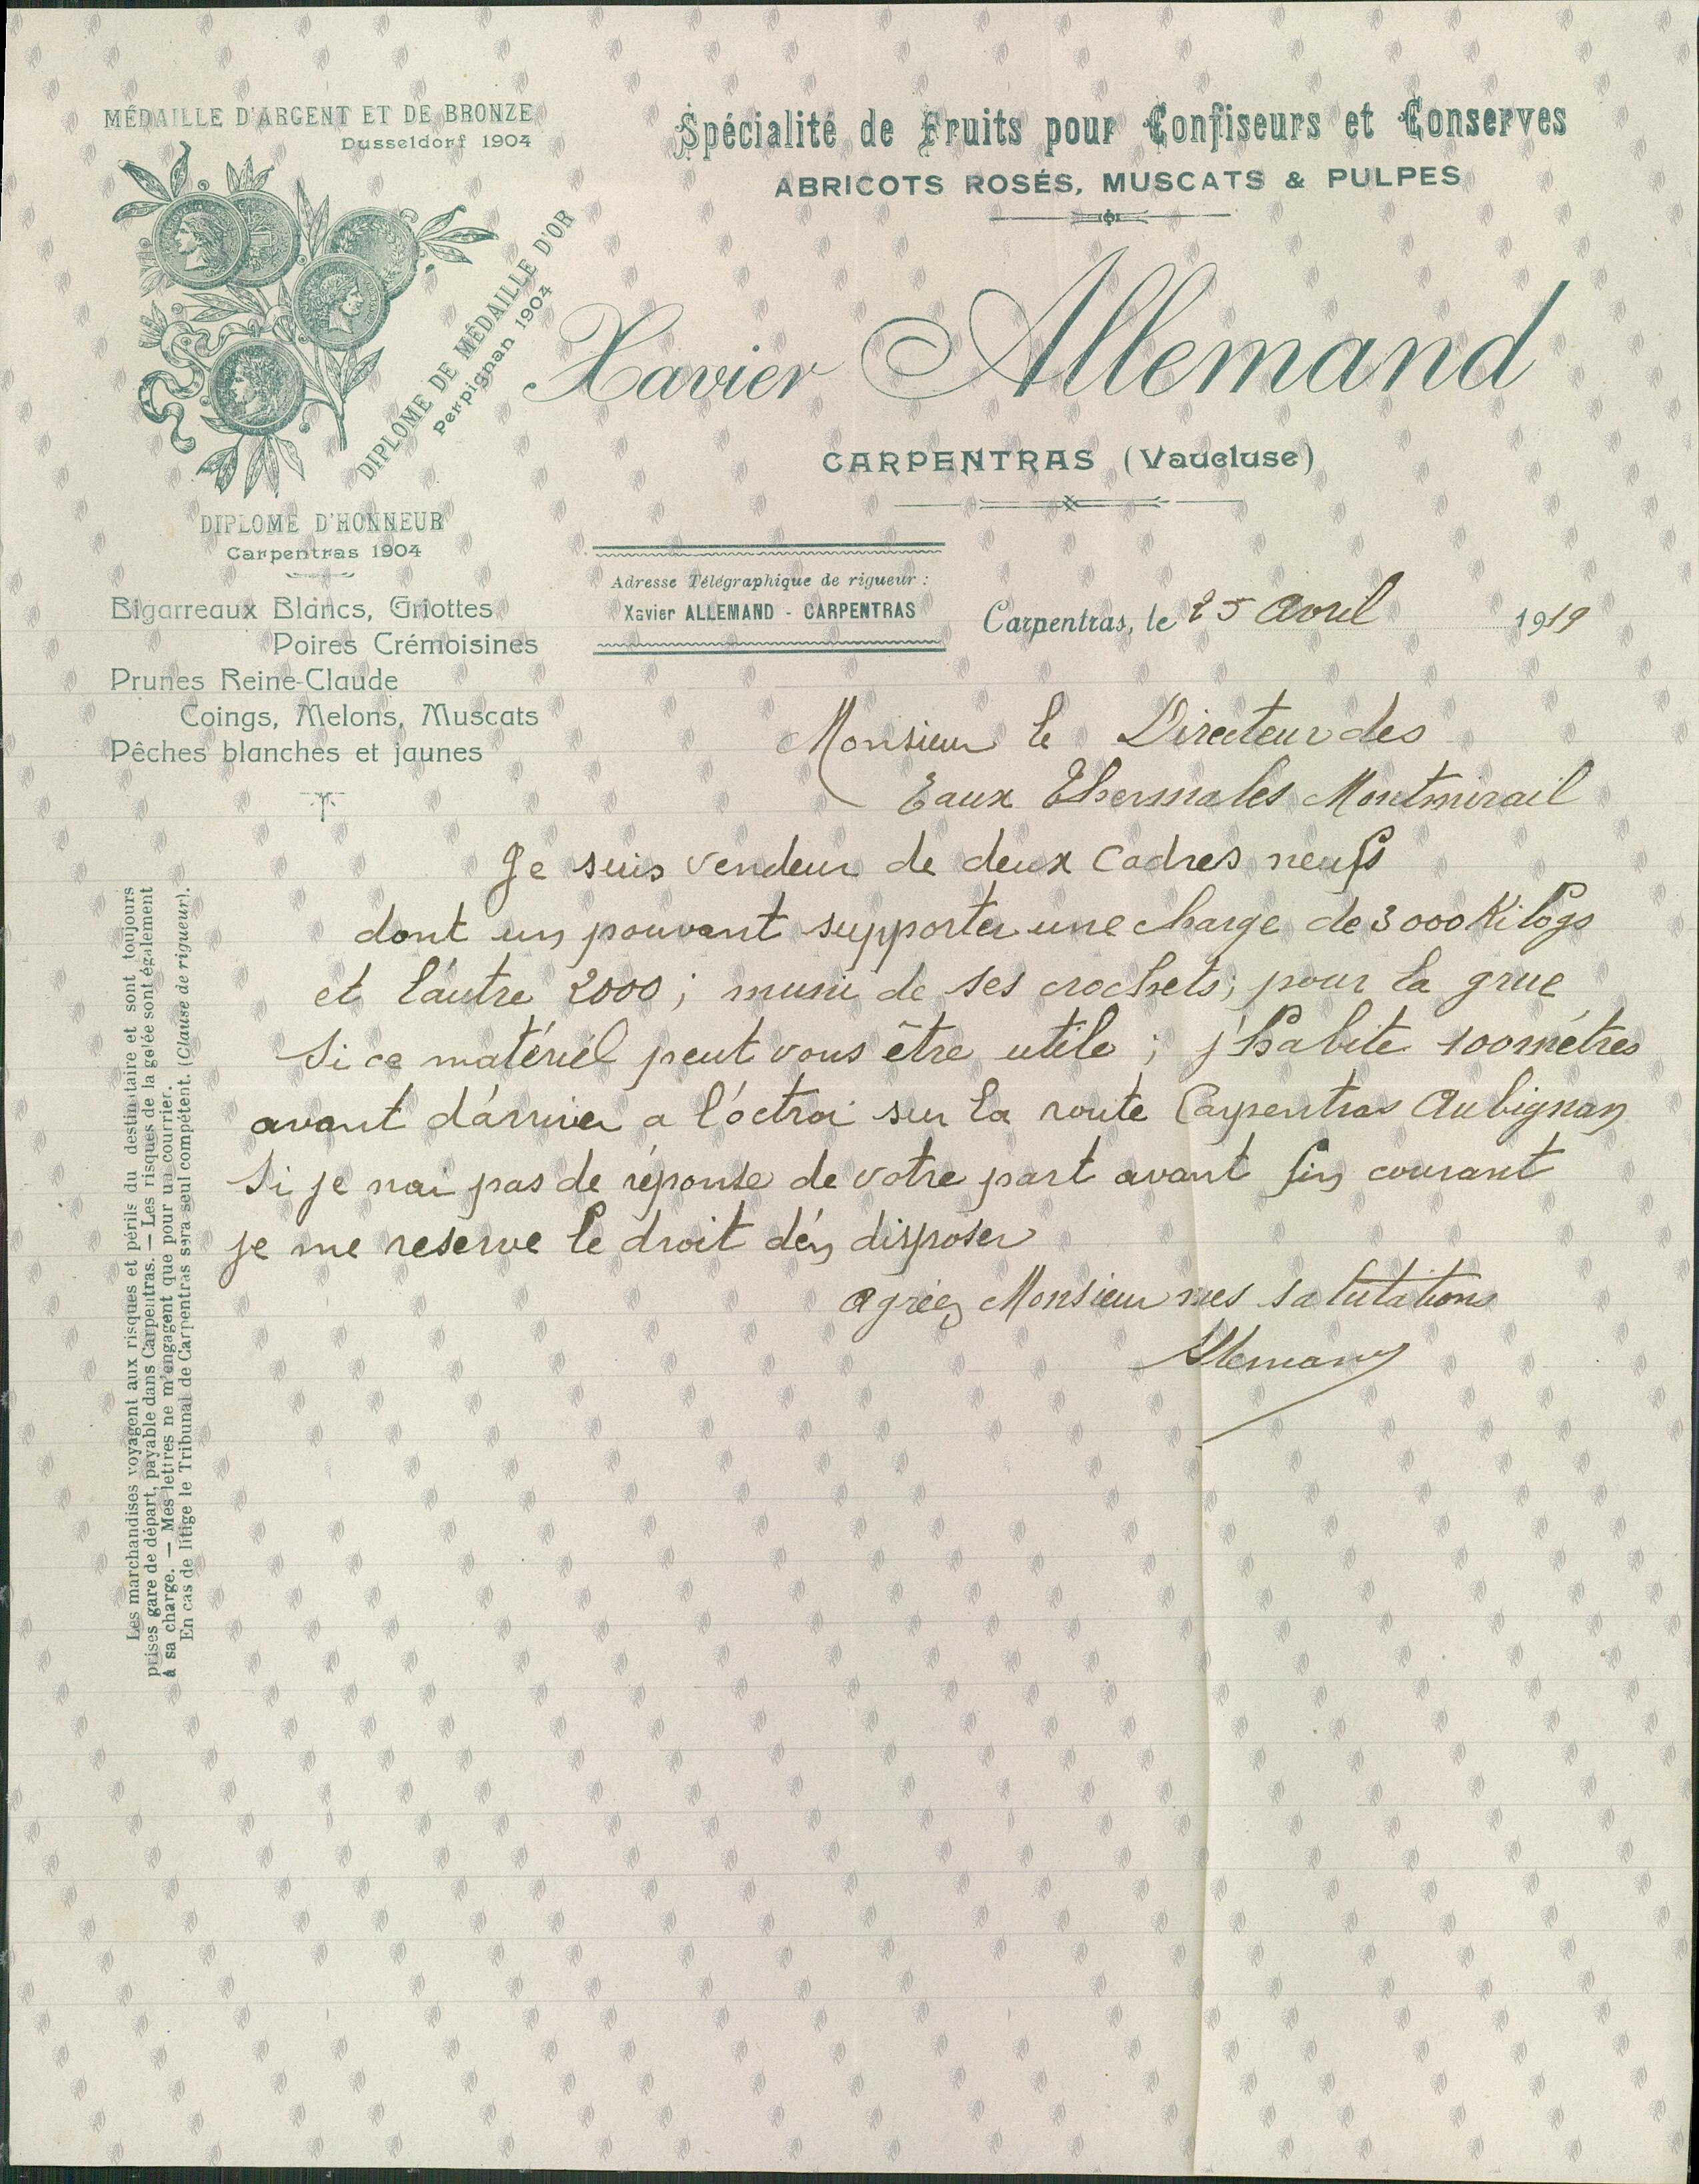 MÉDAILLE D'ARGENT ET DE BRONZE
Dusseldorf 1904
DIPLOME DE MÉDAILLE D'OR
Perpignan 1904
DIPLOME D'HONNEUR
Carpentras 1904
Bigarreaux Blancs, Griottes
Poires Crémoisines
Prunes Reine-Claude
Coings, Melons, Muscats
Pêches blanches et jaunes
Spécialité de Fruits pour Confiseurs et Conserves
ABRICOTS ROSÉS, MUSCATS & PULPES
Xavier Allemand
CARPENTRAS (Vaucluse)
Adresse Télégraphique de rigueur :
Xavier ALLEMAND - CARPENTRAS
Carpentras, le 25 Avril 1919
Monsieur le Directeur des
Eaux Thermales Montmirail
Je suis vendeur de deux Cadres neufs
dont un pouvant supporter une charge de 3000 Kilogs
et l'autre 2000 ; muni de ses crochets ; pour la grue
Si ce matériel peut vous être utile ; j'habite 100 mètres
avant d'arriver a l'octroi sur la route Carpentras Aubignan
Si je nai pas de réponse de votre part avant fin courant
je me reserve le droit d'en disposer
agréez Monsieur mes salutations
Allemand
Les marchandises voyagent aux risques et périls du destinataire et sont toujours
prises gare de départ, payable dans Carpentras. — Les risques de la gelée sont également
à sa charge. — Mes lettres ne m'engagent que pour un courrier.
En cas de litige le Tribunal de Carpentras sera seul compétent. (Clause de rigueur).